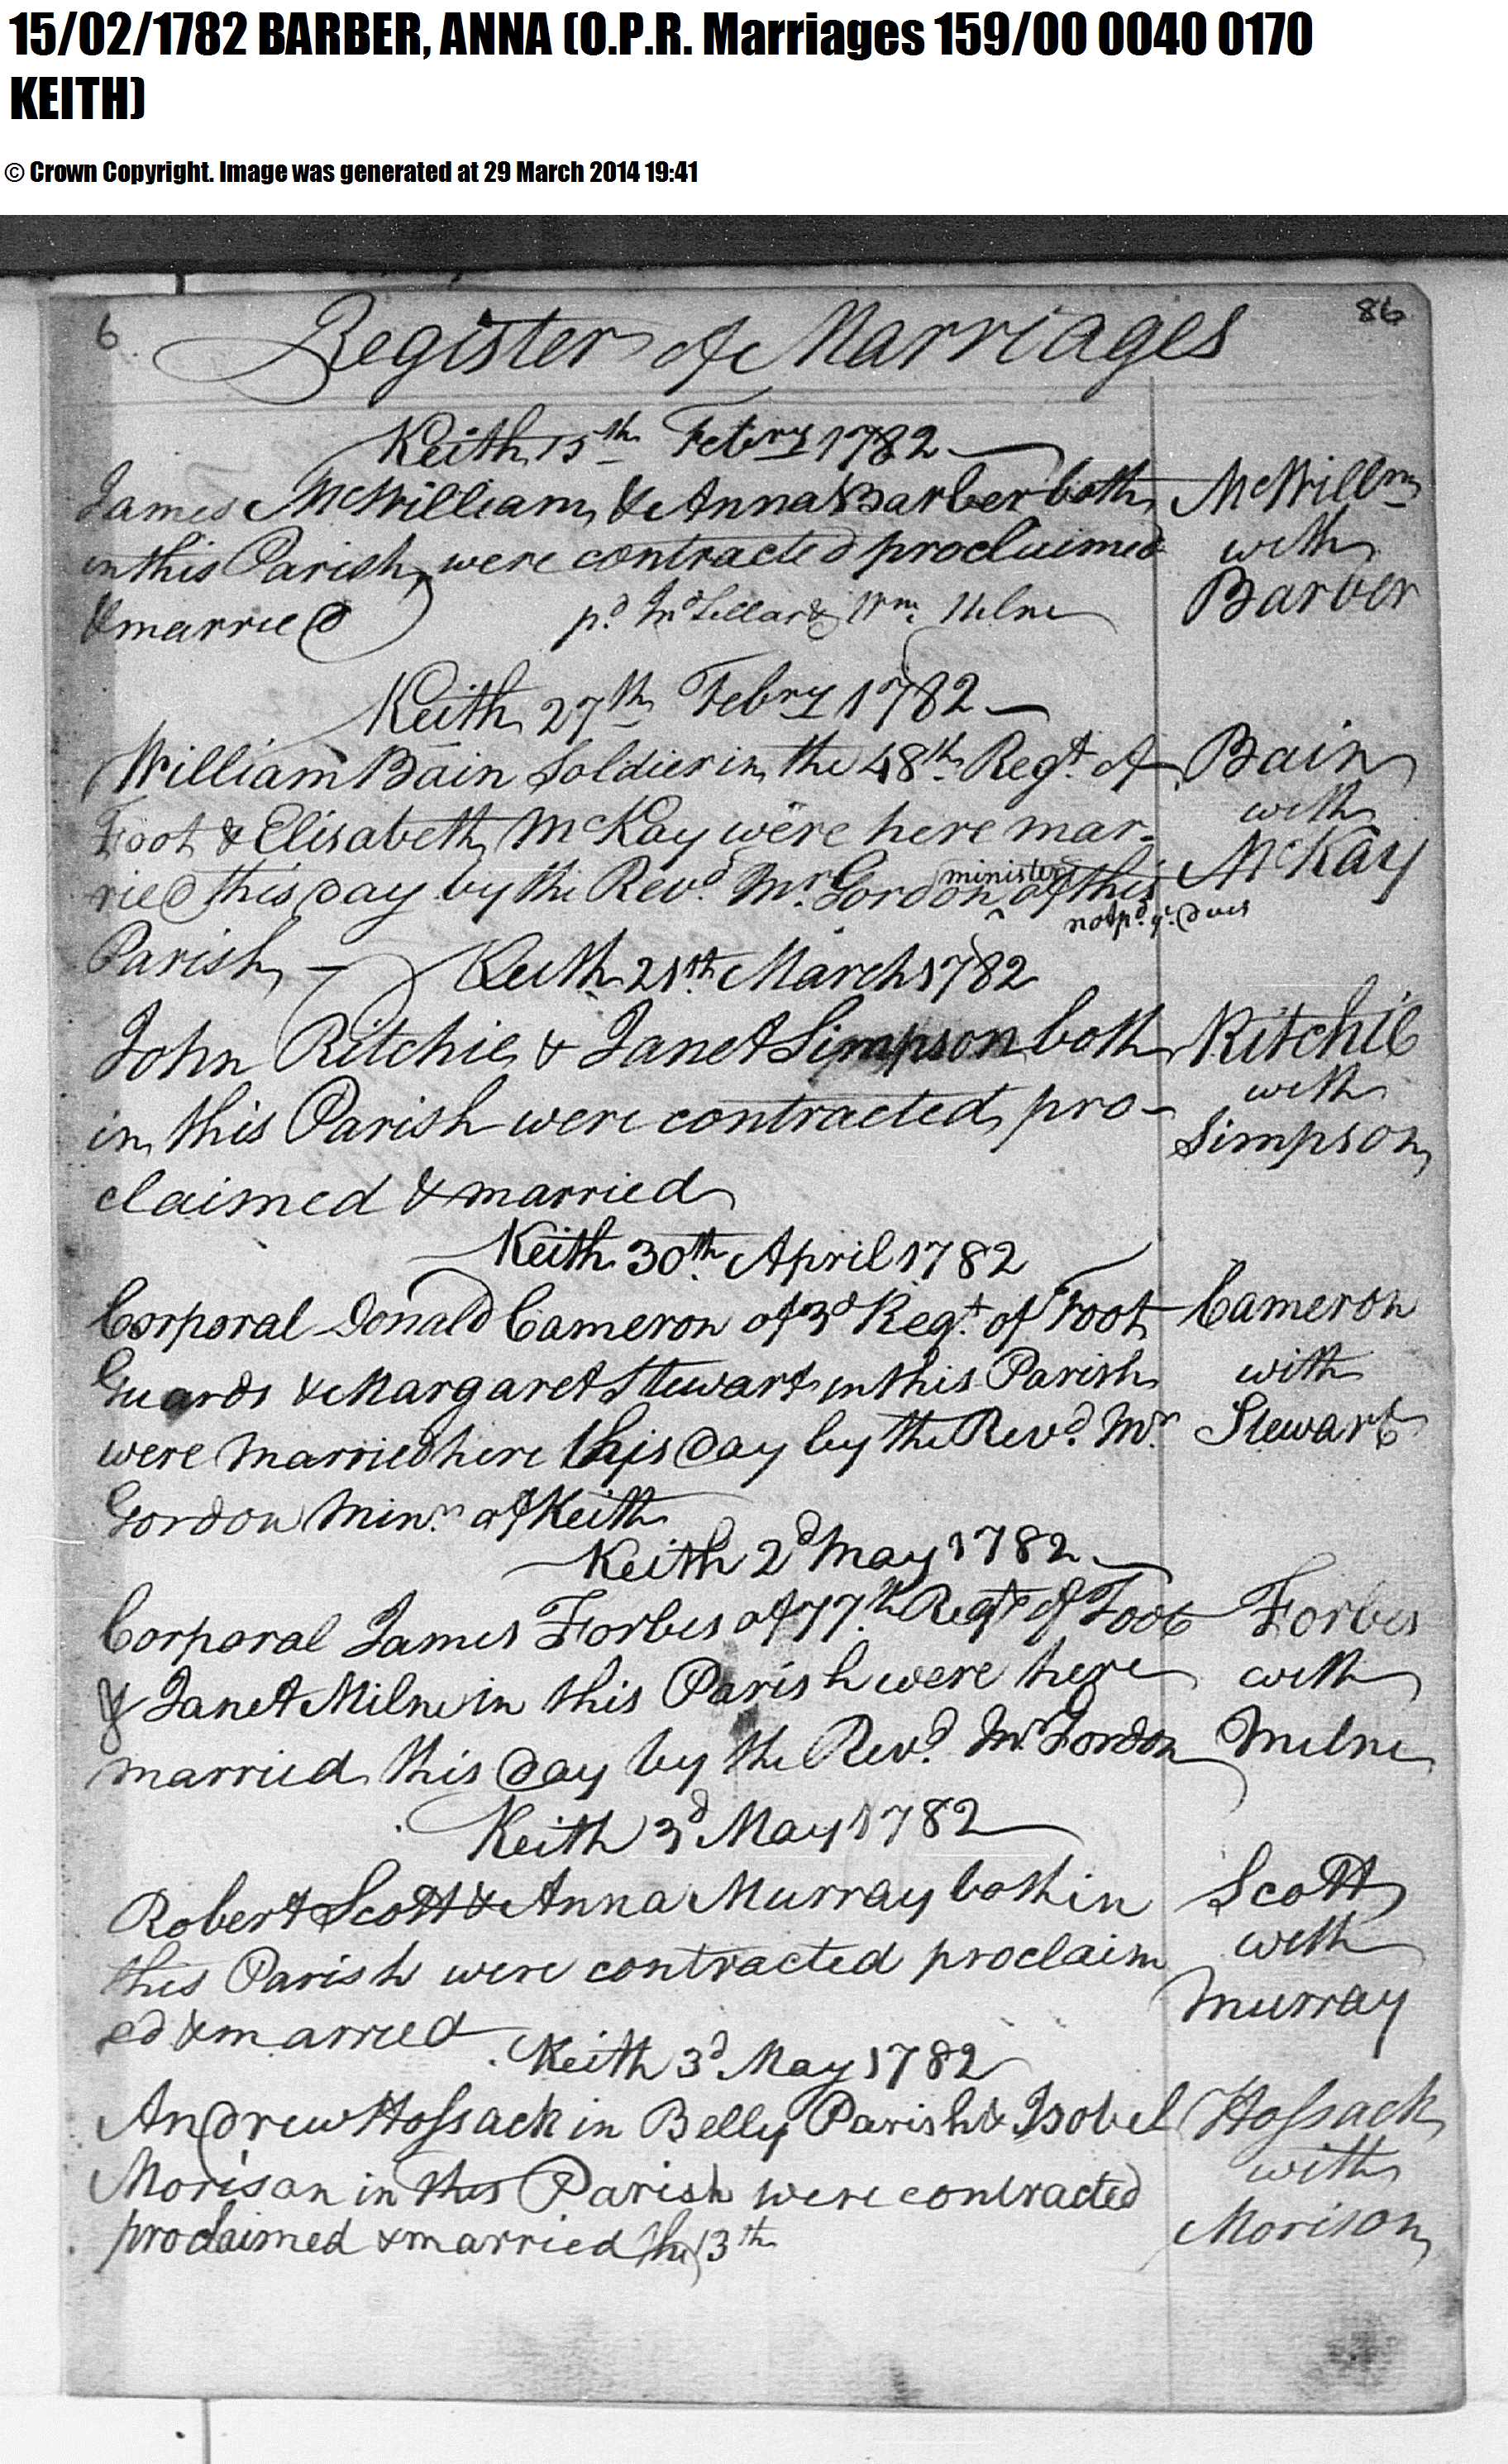 15/02/1782 BARBER, ANNA (O.P.R. Marriages 159/00 0040 0170
KEITH)
© Crown Copyright. Image was generated at 29 March 2014 19:41
6 Register of Marriages 86
Keith 15th Febry 1782
James McWilliam & Anna Barber both McWillm
in this Parish were contracted proclaimed with
& married pd Wm Milne Barber
Keith 27th Febry 1782
William Bain Soldier in the 48th Regt of Bain
Foot & Elisabeth McKay were here mar- with
ried this day by the Revd Mr Gordon minister of this McKay
not pd yr dues
Parish Keith 21th March 1782
John Ritchie & Janet Simpson both Ritchie
in this Parish were contracted pro- with
Simpson
claimed & married
Keith 30th April 1782
Corporal Donald Cameron of 3d Regt of Foot Cameron
Guards & Margaret Stewart in this Parish with
were married here this day by the Revd Mr Stewart
Gordon Minr of Keith
Keith 2d May 1782
Corporal James Forbes of 77th Regt of Foot Forbes
& Janet Milne in this Parish were here with
married this day by the Revd Mr Gordon Milne
Keith 3d May 1782
Robert Scott & Anna Murray both in Scott
this Parish were contracted proclaim with
ed & married Murray
Keith 3d May 1782
Andrew Hossack in Belly Parish & Isobel Hossack
Morison in this Parish were contracted with
proclaimed & married the 13th Morison